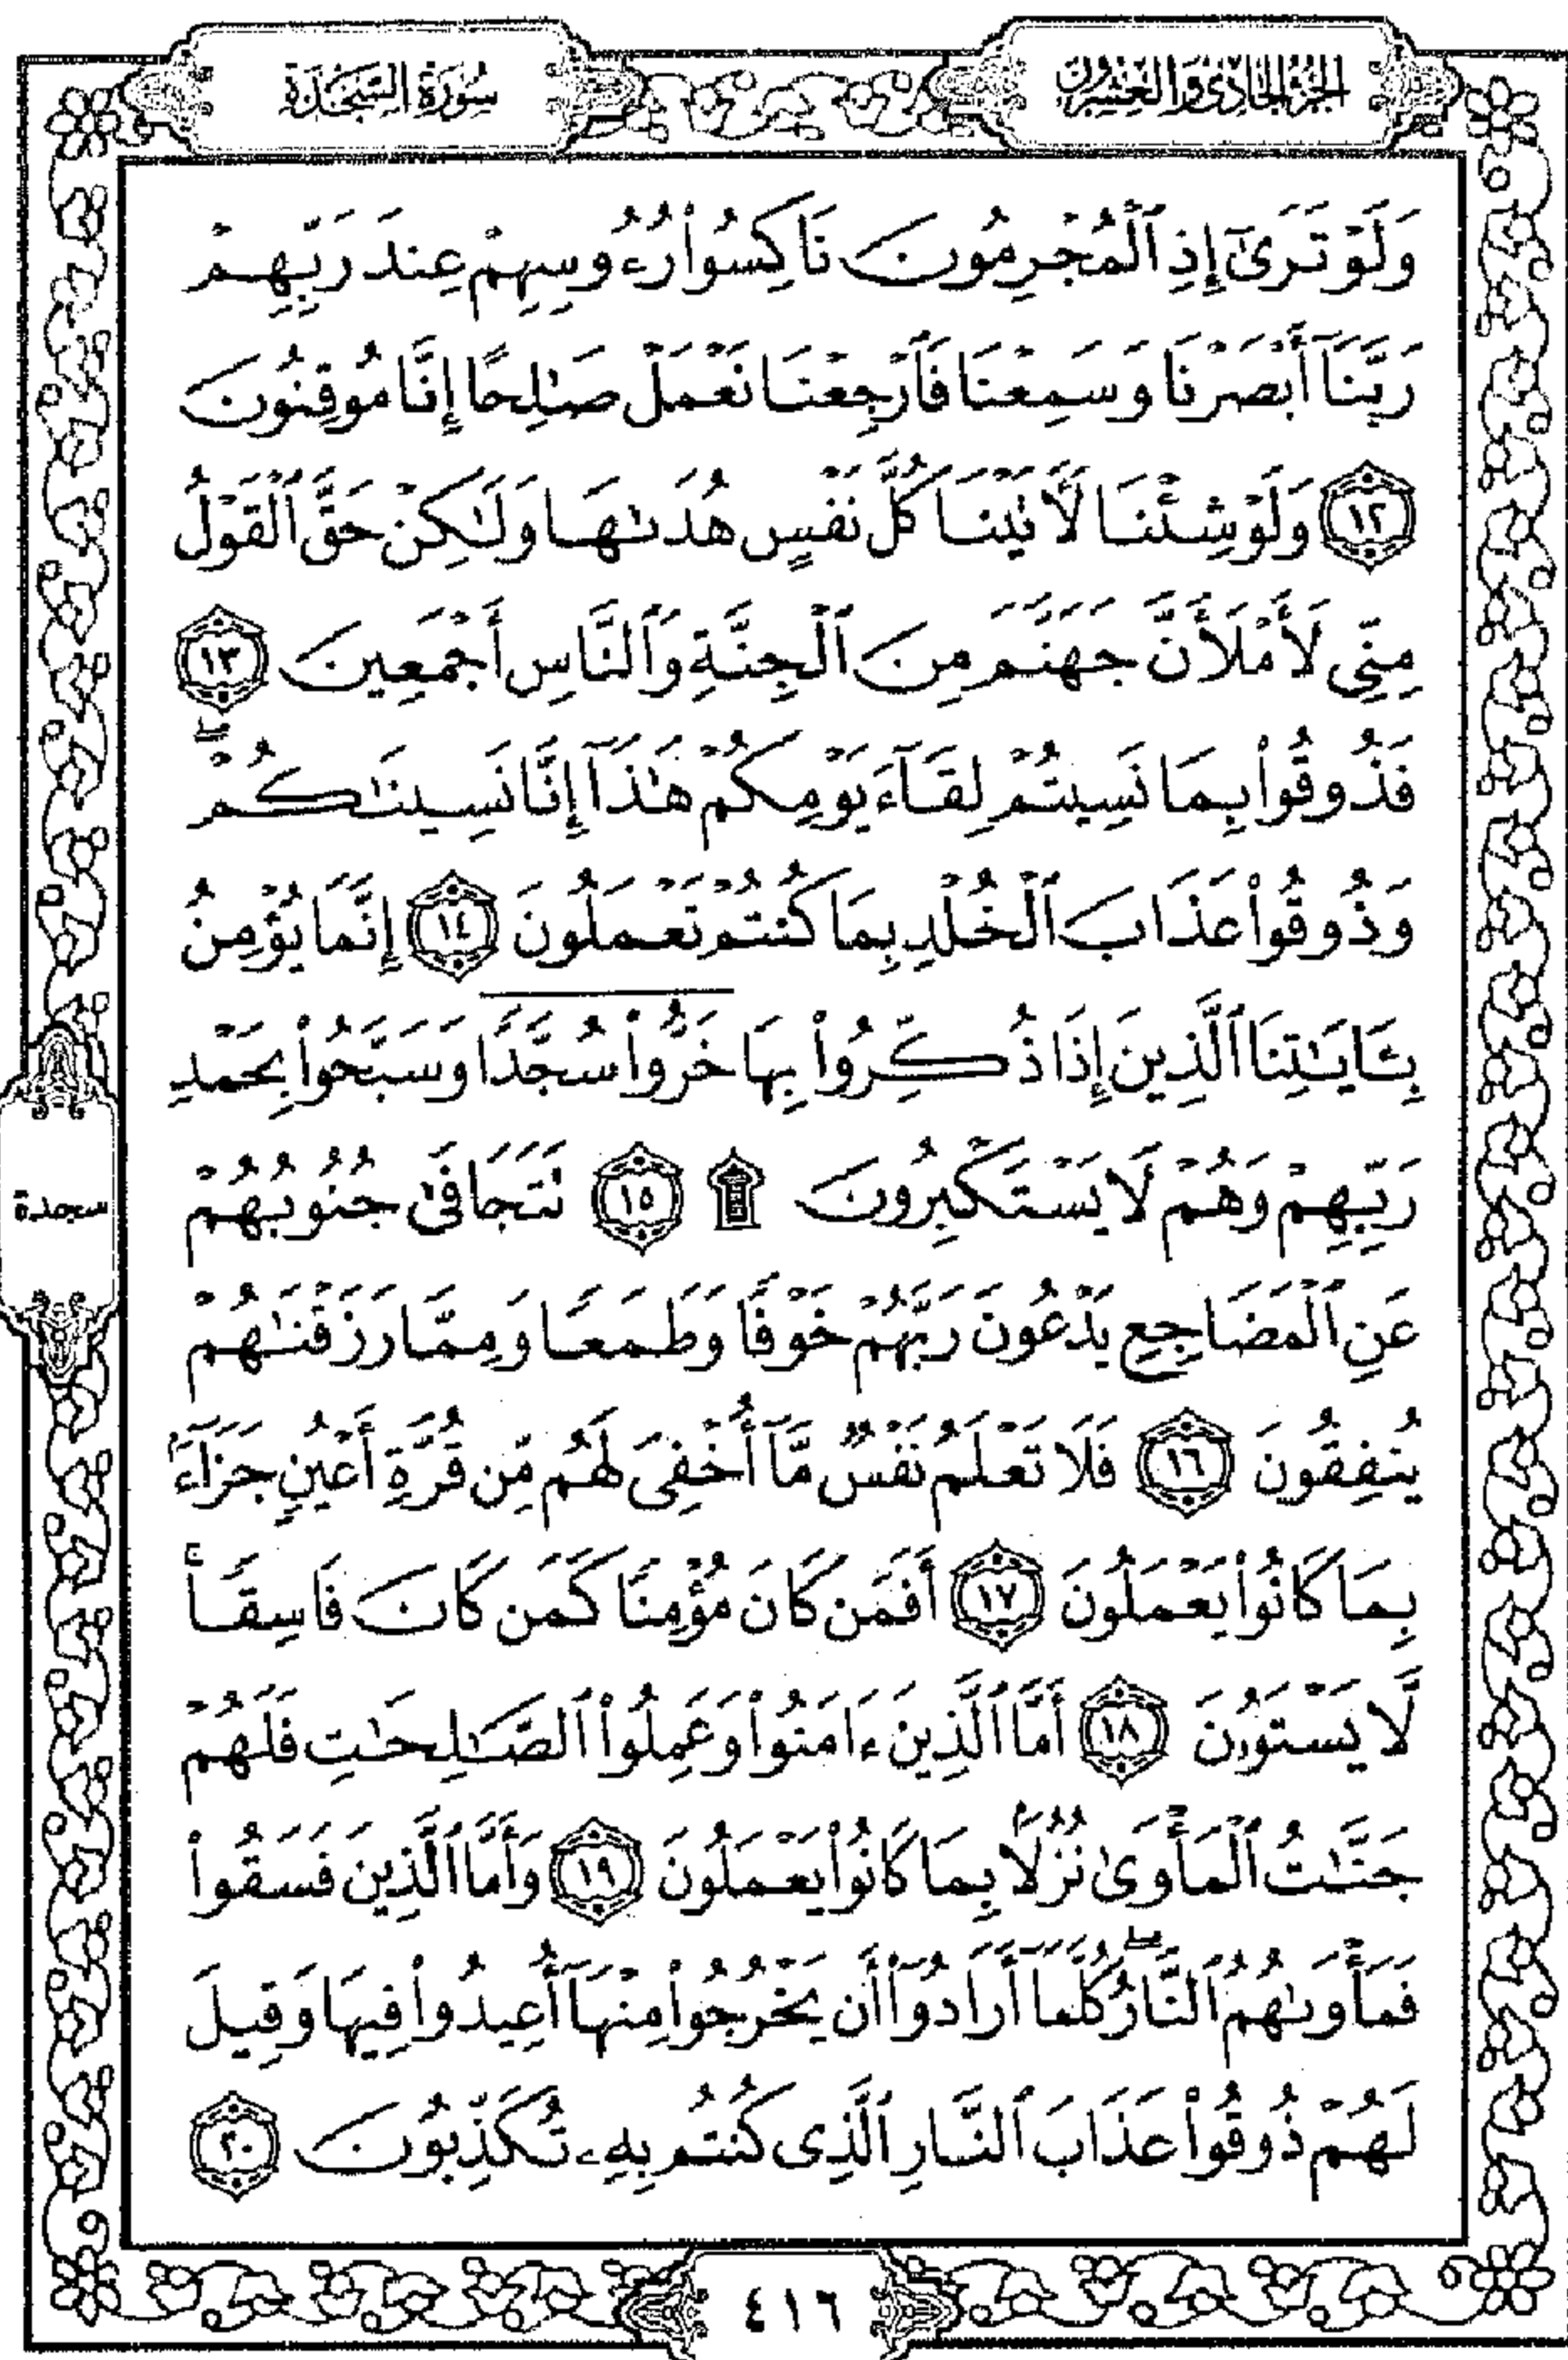 الجزء الحادي والعشرون
سُورَةُ السَّجْدَةِ
وَلَوْ تَرَىٰٓ إِذِ ٱلْمُجْرِمُونَ نَاكِسُوا۟ رُءُوسِهِمْ عِندَ رَبِّهِمْ
رَبَّنَآ أَبْصَرْنَا وَسَمِعْنَا فَٱرْجِعْنَا نَعْمَلْ صَٰلِحًا إِنَّا مُوقِنُونَ
١٢ وَلَوْ شِئْنَا لَءَاتَيْنَا كُلَّ نَفْسٍ هُدَىٰهَا وَلَٰكِنْ حَقَّ ٱلْقَوْلُ
مِنِّى لَأَمْلَأَنَّ جَهَنَّمَ مِنَ ٱلْجِنَّةِ وَٱلنَّاسِ أَجْمَعِينَ ١٣
فَذُوقُوا۟ بِمَا نَسِيتُمْ لِقَآءَ يَوْمِكُمْ هَٰذَآ إِنَّا نَسِينَٰكُمْ ۖ
وَذُوقُوا۟ عَذَابَ ٱلْخُلْدِ بِمَا كُنتُمْ تَعْمَلُونَ ١٤ إِنَّمَا يُؤْمِنُ
بِـَٔايَٰتِنَا ٱلَّذِينَ إِذَا ذُكِّرُوا۟ بِهَا خَرُّوا۟ سُجَّدًا وَسَبَّحُوا۟ بِحَمْدِ
رَبِّهِمْ وَهُمْ لَا يَسْتَكْبِرُونَ ۩ ١٥ تَتَجَافَىٰ جُنُوبُهُمْ
سجدة
عَنِ ٱلْمَضَاجِعِ يَدْعُونَ رَبَّهُمْ خَوْفًا وَطَمَعًا وَمِمَّا رَزَقْنَٰهُمْ
يُنفِقُونَ ١٦ فَلَا تَعْلَمُ نَفْسٌ مَّآ أُخْفِىَ لَهُم مِّن قُرَّةِ أَعْيُنٍ جَزَآءًۢ
بِمَا كَانُوا۟ يَعْمَلُونَ ١٧ أَفَمَن كَانَ مُؤْمِنًا كَمَن كَانَ فَاسِقًا ۚ
لَّا يَسْتَوُۥنَ ١٨ أَمَّا ٱلَّذِينَ ءَامَنُوا۟ وَعَمِلُوا۟ ٱلصَّٰلِحَٰتِ فَلَهُمْ
جَنَّٰتُ ٱلْمَأْوَىٰ نُزُلًۢا بِمَا كَانُوا۟ يَعْمَلُونَ ١٩ وَأَمَّا ٱلَّذِينَ فَسَقُوا۟
فَمَأْوَىٰهُمُ ٱلنَّارُ ۖ كُلَّمَآ أَرَادُوٓا۟ أَن يَخْرُجُوا۟ مِنْهَآ أُعِيدُوا۟ فِيهَا وَقِيلَ
لَهُمْ ذُوقُوا۟ عَذَابَ ٱلنَّارِ ٱلَّذِى كُنتُم بِهِۦ تُكَذِّبُونَ ٢٠
٤١٦